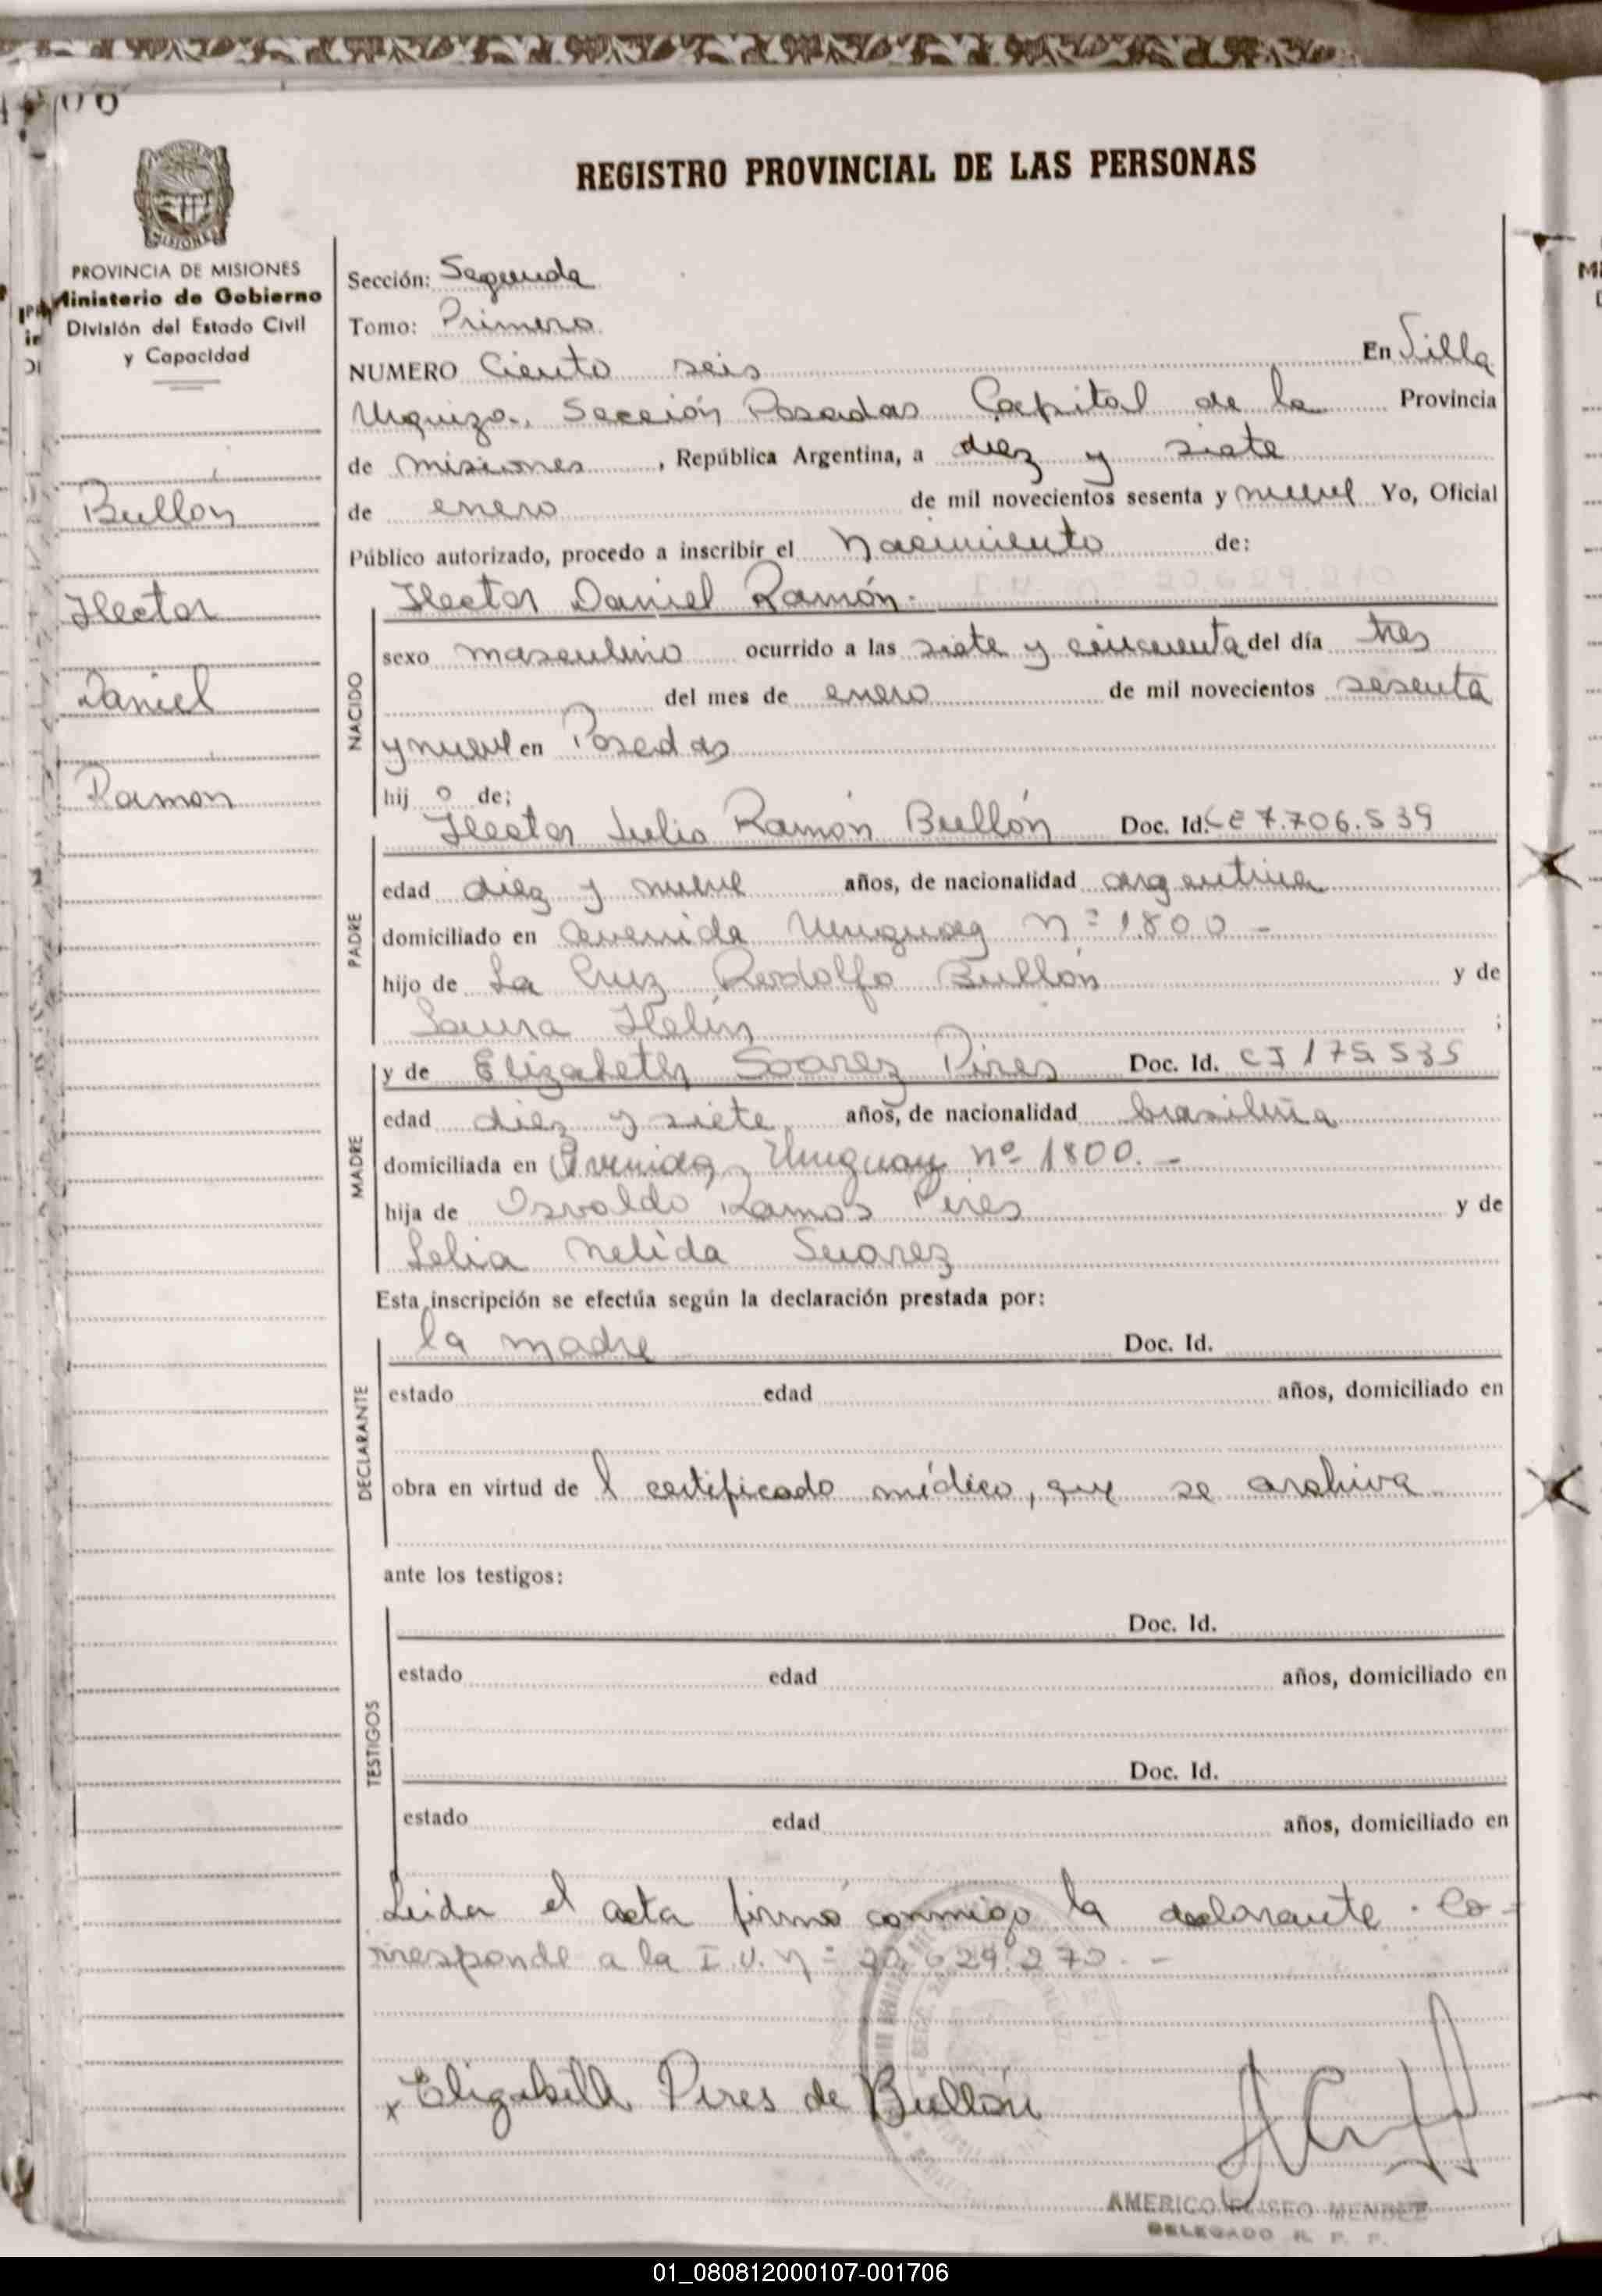 REGISTRO PROVINCIAL DE LAS PERSONAS
MISIONES
PROVINCIA DE MISIONES
Ministerio de Gobierno
División del Estado Civil
y Capacidad
Bullón
Hector
Daniel
Ramon
Sección: Segunda
Tomo: Primero
NUMERO Ciento seis En Villa
Urquiza, Sección Posadas Capital de la Provincia
de misiones, República Argentina, a diez y siete
de enero de mil novecientos sesenta y nueve Yo, Oficial
Público autorizado, procedo a inscribir el nacimiento de:
Hector Daniel Ramón.
NACIDO
sexo masculino ocurrido a las siete y cincuenta del día tres
del mes de enero de mil novecientos sesenta
y nueve en Posadas
hij o de;
Hector Julio Ramón Bullón Doc. Id. LE 7.706.539
PADRE
edad diez y nueve años, de nacionalidad argentina
domiciliado en avenida Uruguay nº 1800 -
hijo de La Cruz Rodolfo Bullón y de
Laura ;
y de Elizabeth Soarez Pires Doc. Id. CI 175.535
MADRE
edad diez y siete años, de nacionalidad brasileña
domiciliada en Avenida Uruguay nº 1800. -
hija de Osvaldo Ramos Pires y de
Lelia Nelida Suarez
Esta inscripción se efectúa según la declaración prestada por:
la madre Doc. Id.
DECLARANTE
estado edad años, domiciliado en
obra en virtud de l certificado médico, que se archiva
ante los testigos:
Doc. Id.
TESTIGOS
estado edad años, domiciliado en
Doc. Id.
estado edad años, domiciliado en
Leida el acta firmó conmigo la declarante. Co-
rresponde a la I.U. nº 20.629.270. -
x Elizabeth Pires de Bullón
AMERICO ELISEO MENDEZ
DELEGADO R. P. P.
01_080812000107-001706